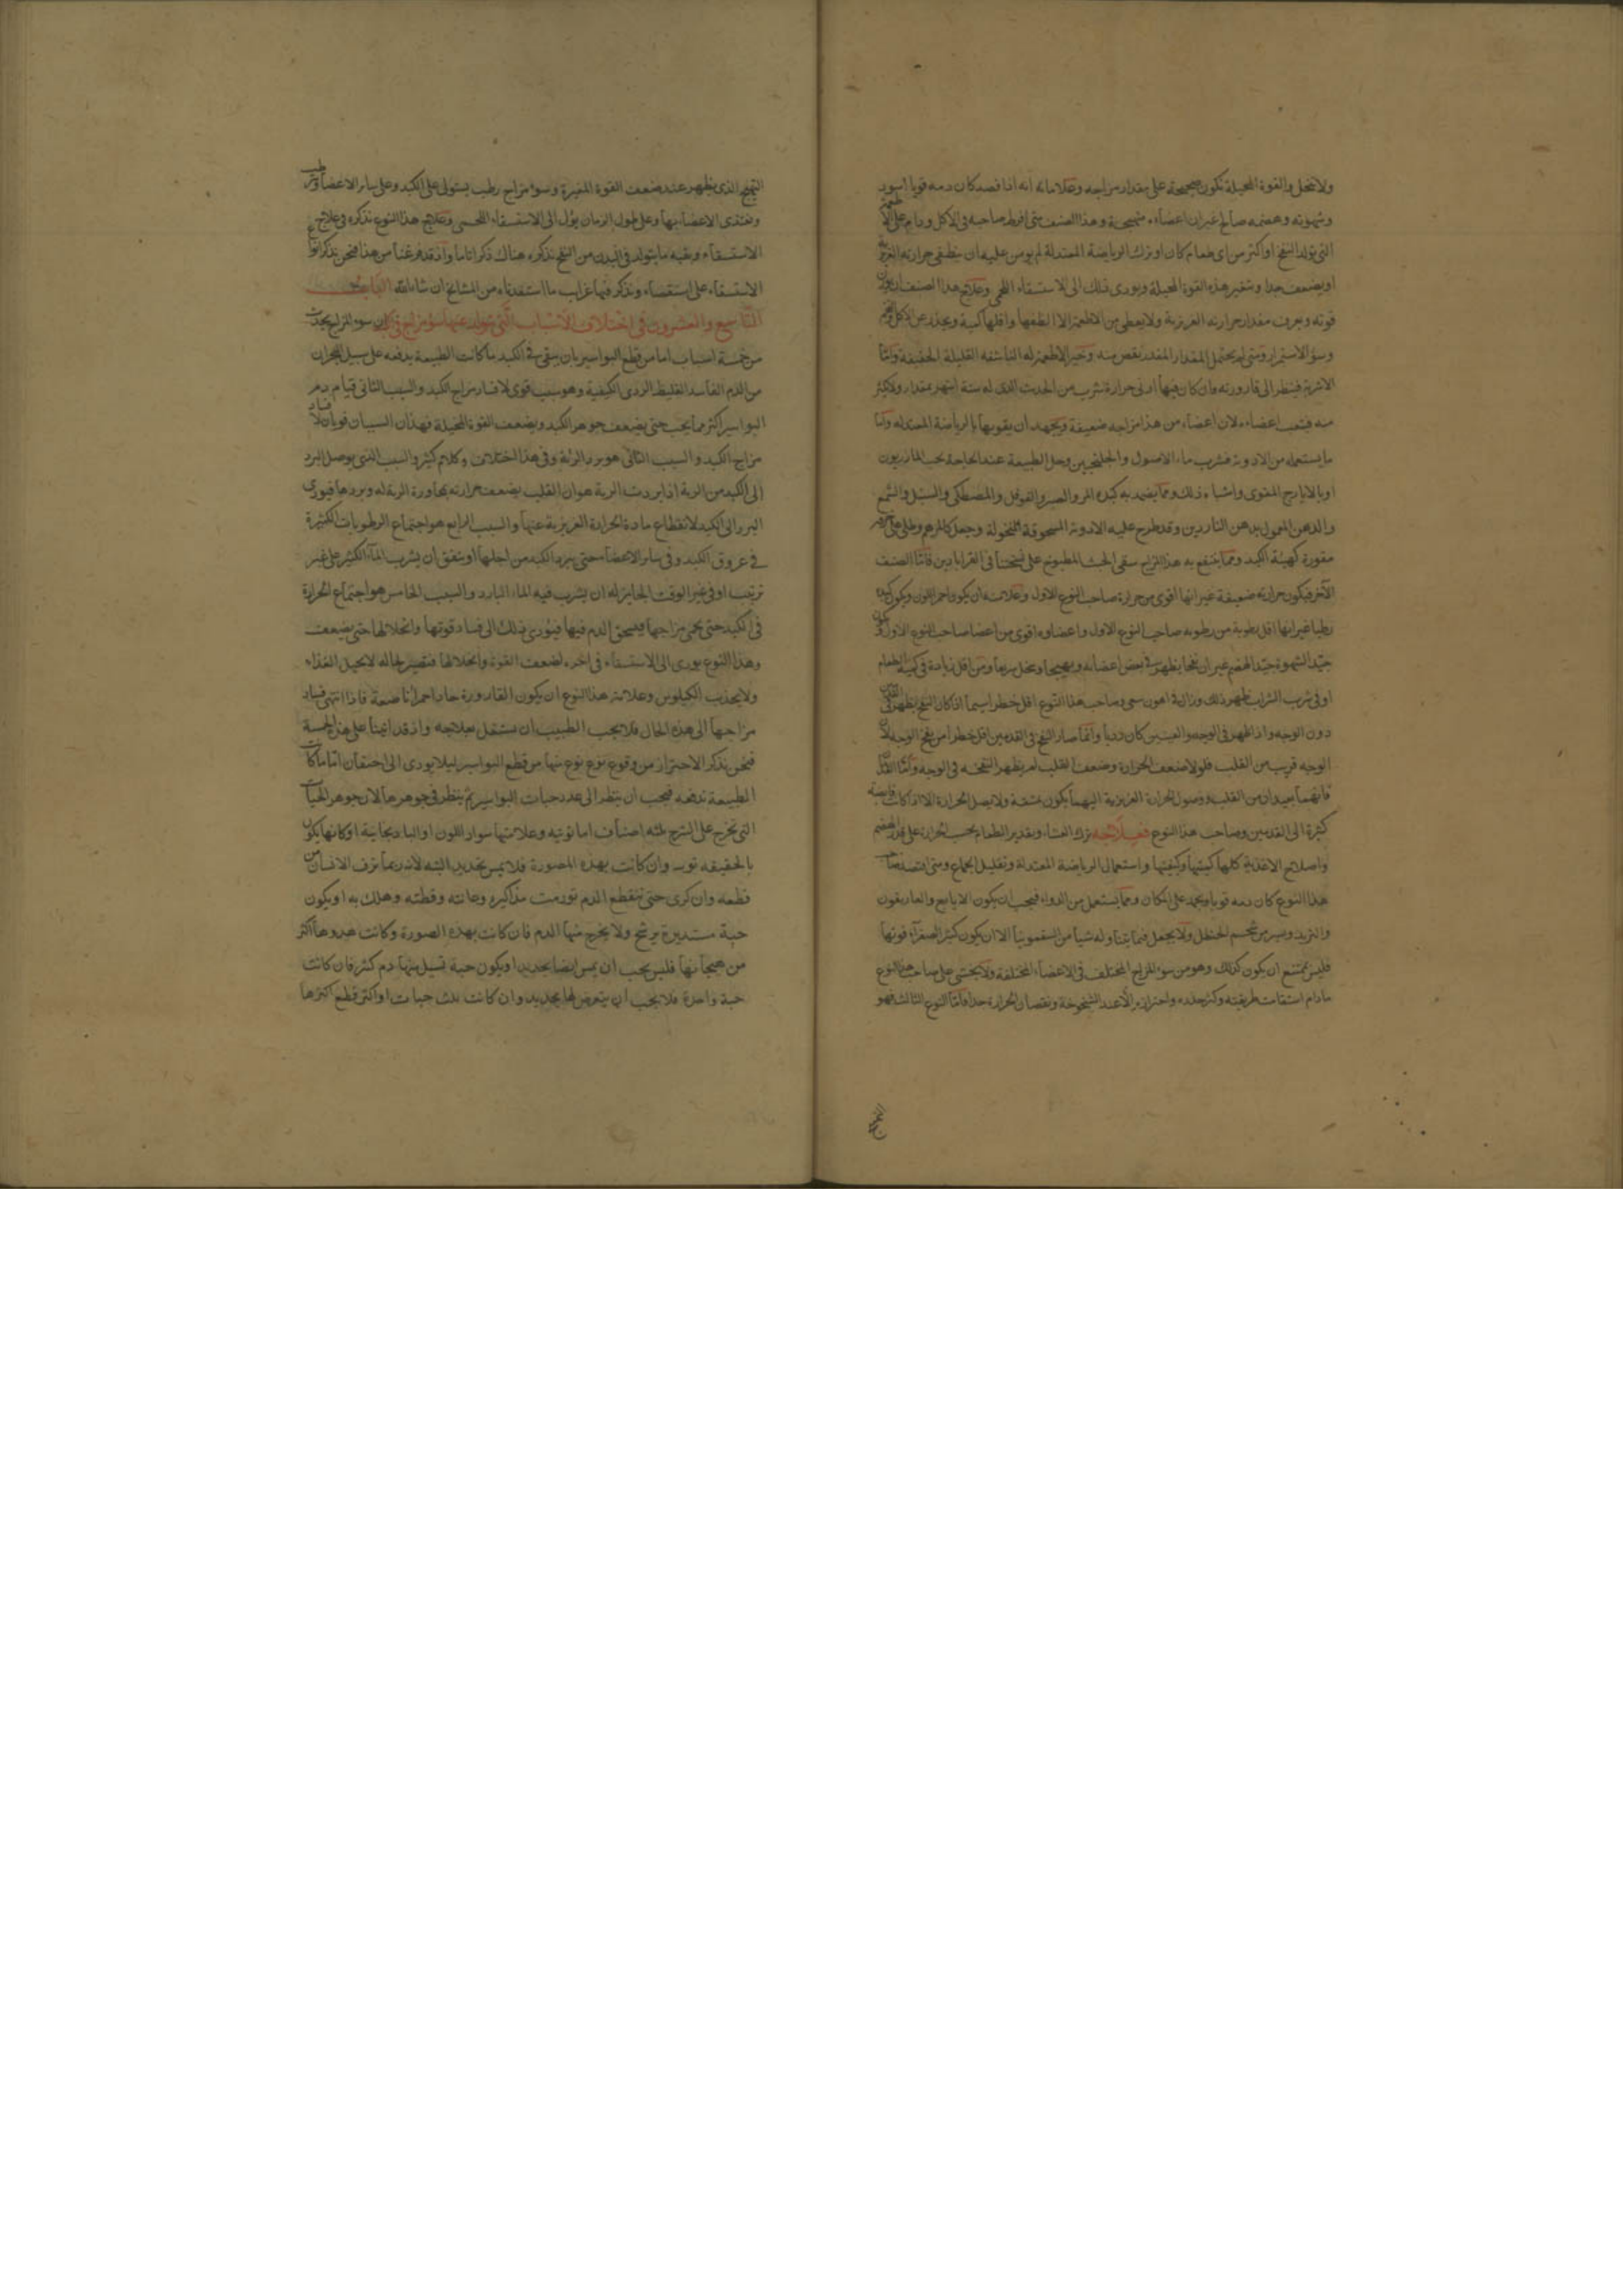 ولا تنحل والقوة المحيلة تكون صحيحة على مقدار مزاجه وعلاماته انه اذا فصد كان دمه قويا اسود
وشهوته وهضمه صالح غير ان اعضاءه متهيجة وهذا الصنف متى افرط صاحبه في الاكل ودام على الاطعمة
التي تولد النفخ او اكثر من اي طعام كان او ترك الرياضة المعتدلة لم يومن عليه ان ينطفي حرارته الغريزية
او يضعف جدا وتتغير هذه القوة المحيلة ويودى ذلك الى الاستسقاء اللحمي وعلاج هذا الصنف ان
قوته ويعرف مقدار حرارته الغريزية ولا يعطى من الاطعمة الا الطفها واقلها كمية ويحذر عن الاكل
وسوء الاستمراء ومتى لم يحتمل المقدار المقدر نقص منه وخير الاطعمة له الناشفة القليلة الخفيفة واما
الاشربة فينظر الى قارورته فان كان فيها ادنى حرارة شرب من الحديث الذي له ستة اشهر بمقدار ولا يكثر
منه فيتعب اعضاءه لان اعضاءه من هذا مزاجه ضعيفة ويجهد ان يقويها بالرياضة المعتدلة واما
ما يستعمله من الادوية فشرب ماء الاصول والجلنجبين وحل الطبيعة عند الحاجة بحب المازريون
او بالايارج المقوى واشباه ذلك ومما يضمد به كبده المر والصبر والفوفل والمصطكى والسنبل والشمع
والدهن المعمول بدهن الناردين وقد طرح عليه الادوية المسحوقة المنخولة وجعل كالمرهم وطلى على
مقورة كهيئة الكبد ومما ينتفع به هذا المزاج سقى الخبث المطبوخ على نسختنا في القراباذين فاما الصنف
الآخر فيكون حرارته ضعيفة غير انها اقوى من حرارة صاحب النوع الاول وعلامته ان يكون احمر اللون ويكون
رطبا غير انها اقل رطوبة من رطوبة صاحب النوع الاول واعضاوه اقوى من اعضا صاحب النوع الاول
جيد الشهوة جيد الهضم غير ان نفخا يظهر في بعض اعضائه وتهيجا وينحل سريعا ومتى اقل زيادة في كمية الطعام
او في شرب الشراب ظهر ذلك وزال في اهون سعي وصاحب هذا النوع اقل خطرا سيما اذا كان النفخ يظهر في القدمين
دون الوجه واذا ظهر في الوجه والعينين كان رديا وانما صار النفخ في القدمين اقل خطرا من نفخ الوجه لان
الوجه قريب من القلب فلولا ضعف الحرارة وضعف القلب لم يظهر النفخة في الوجه واما القدمان
فانهما بعيدان من القلب ووصول الحرارة الغريزية اليهما يكون بمشقة ولا يصل الحرارة الا اذا كانت فايضة
كثيرة الى القدمين وصاحب هذا النوع فعلاجه ترك العشاء وتقدير الطعام بحسب الحرارة على قدر الهضم
واصلاح الاغذية كلها كميتها وكيفيتها واستعمال الرياضة المعتدلة وتقليل الجماع ومتى افتصد صاحب
هذا النوع كان دمه قويا ويجمد على المكان ومما يستعمل من الدواء فيجب ان يكون الايارج والغاريقون
والتربد ويسير من شحم الحنظل ولا يجعل فيما يتناوله شيأ من السقمونيا الا ان يكون كثير الصفراء قويها
فليس يمتنع ان يكون كذلك وهو من سوء المزاج المختلف في الاعضاء المختلفة ولا يخشى على صاحب هذا النوع
مادام استقامت طريقته وكثر حذره واحترازه الا عند الشيخوخة ونقصان الحرارة جدا فاما النوع الثالث فهو
التهيج
التهيج الذي يظهر عند ضعف القوة المغيرة وسوء مزاج رطب يستولى على الكبد وعلى ساير الاعضاء
وتغتذى الاعضاء بها وعلى طول الزمان يؤل الى الاستسقاء اللحمي وعلاج هذا النوع نذكره في علاج
الاستسقاء وبقية ما يتولد في البدن من النفخ نذكره هناك ذكرا تاما واذ قد فرغنا من هذا فنحن نذكر انواع
الاستسقاء على استقصاء ونذكر فيها غرايب ما استفدناه من المشايخ ان شاء الله الباب
التاسع والعشرون في اختلاف الاسباب التي يتولد عنها سوء مزاج في الكبد ان سوء المزاج يحدث
من خمسة اسباب اما من قطع البواسير بان يبقى في الكبد ما كانت الطبيعة يدفعه على سبيل البحران
من الدم الفاسد الغليظ الردى الكيفية وهو سبب قوى لافساد مزاج الكبد والسبب الثاني قيام دم
البواسير اكثر مما يجب حتى يضعف جوهر الكبد ويضعف القوة المحيلة فهذان السببان قويان لافساد
مزاج الكبد والسبب الثالث هو برد الرئة وفي هذا اختلاف وكلام كثير والسبب الذي يوصل البرد
الى الكبد من الرية اذا بردت الرية هو ان القلب يضعف حرارته بمجاورة الرية له وبردها فيودى
البرد الى الكبد لانقطاع مادة الحرارة الغريزية عنها والسبب الرابع هو اجتماع الرطوبات الكثيرة
في عروق الكبد وفي ساير الاعضاء حتى يبرد الكبد من اجلها او يتفق ان يشرب الماء الكثير على غير
ترتيب او في غير الوقت الجايز له ان يشرب فيه الماء البارد والسبب الخامس هو اجتماع الحرارة
في الكبد حتى يحمى مزاجها فيحرق الدم فيها فيؤدى ذلك الى فساد قوتها وانحلالها حتى يضعف
وهذا النوع يودى الى الاستسقاء في اخره لضعف القوة وانحلالها فتصير بحالة لا يحيل الغذاء
ولا يجذب الكيلوس وعلامة هذا النوع ان يكون القارورة حادا احمر ناصعة فاذا انتهى فساد
مزاجها الى هذه الحال فلا يجب الطبيب ان يشتغل بعلاجه واذ قد اتينا على هذه الخمسة
فنحن نذكر الاحتراز من وقوع نوع نوع منها من قطع البواسير ليلا يودى الى احتقان ما كانت
الطبيعة تدفعه فيجب ان ينظر الى عدد حبات البواسير ثم ينظر في جوهرها لان جوهر الحبات
التي تخرج على الشرج ثلثه اصناف اما توتيه وعلامتها سواد اللون او الباذنجانية او كانها يكون
بالحقيقه توت وان كانت بهذه الصورة فلا يمس بحديد البته لانه ربما نزف الانسان من
قطعه وان كوى حتى ينقطع الدم تورمت مذاكيره وعانته وقطنه وهلك به او يكون
حبة مستديرة ترشح ولا يخرج منها الدم فان كانت بهذه الصورة وكانت هدوها اكثر
من هيجانها فليس يجب ان يمس ايضا بحديد او يكون حبة تسيل منها دم كثير فان كانت
حبة واحدة فلا يجب ان يتعرض لها بحديد وان كانت ثلث حبات او اكثر قطع اكثرها